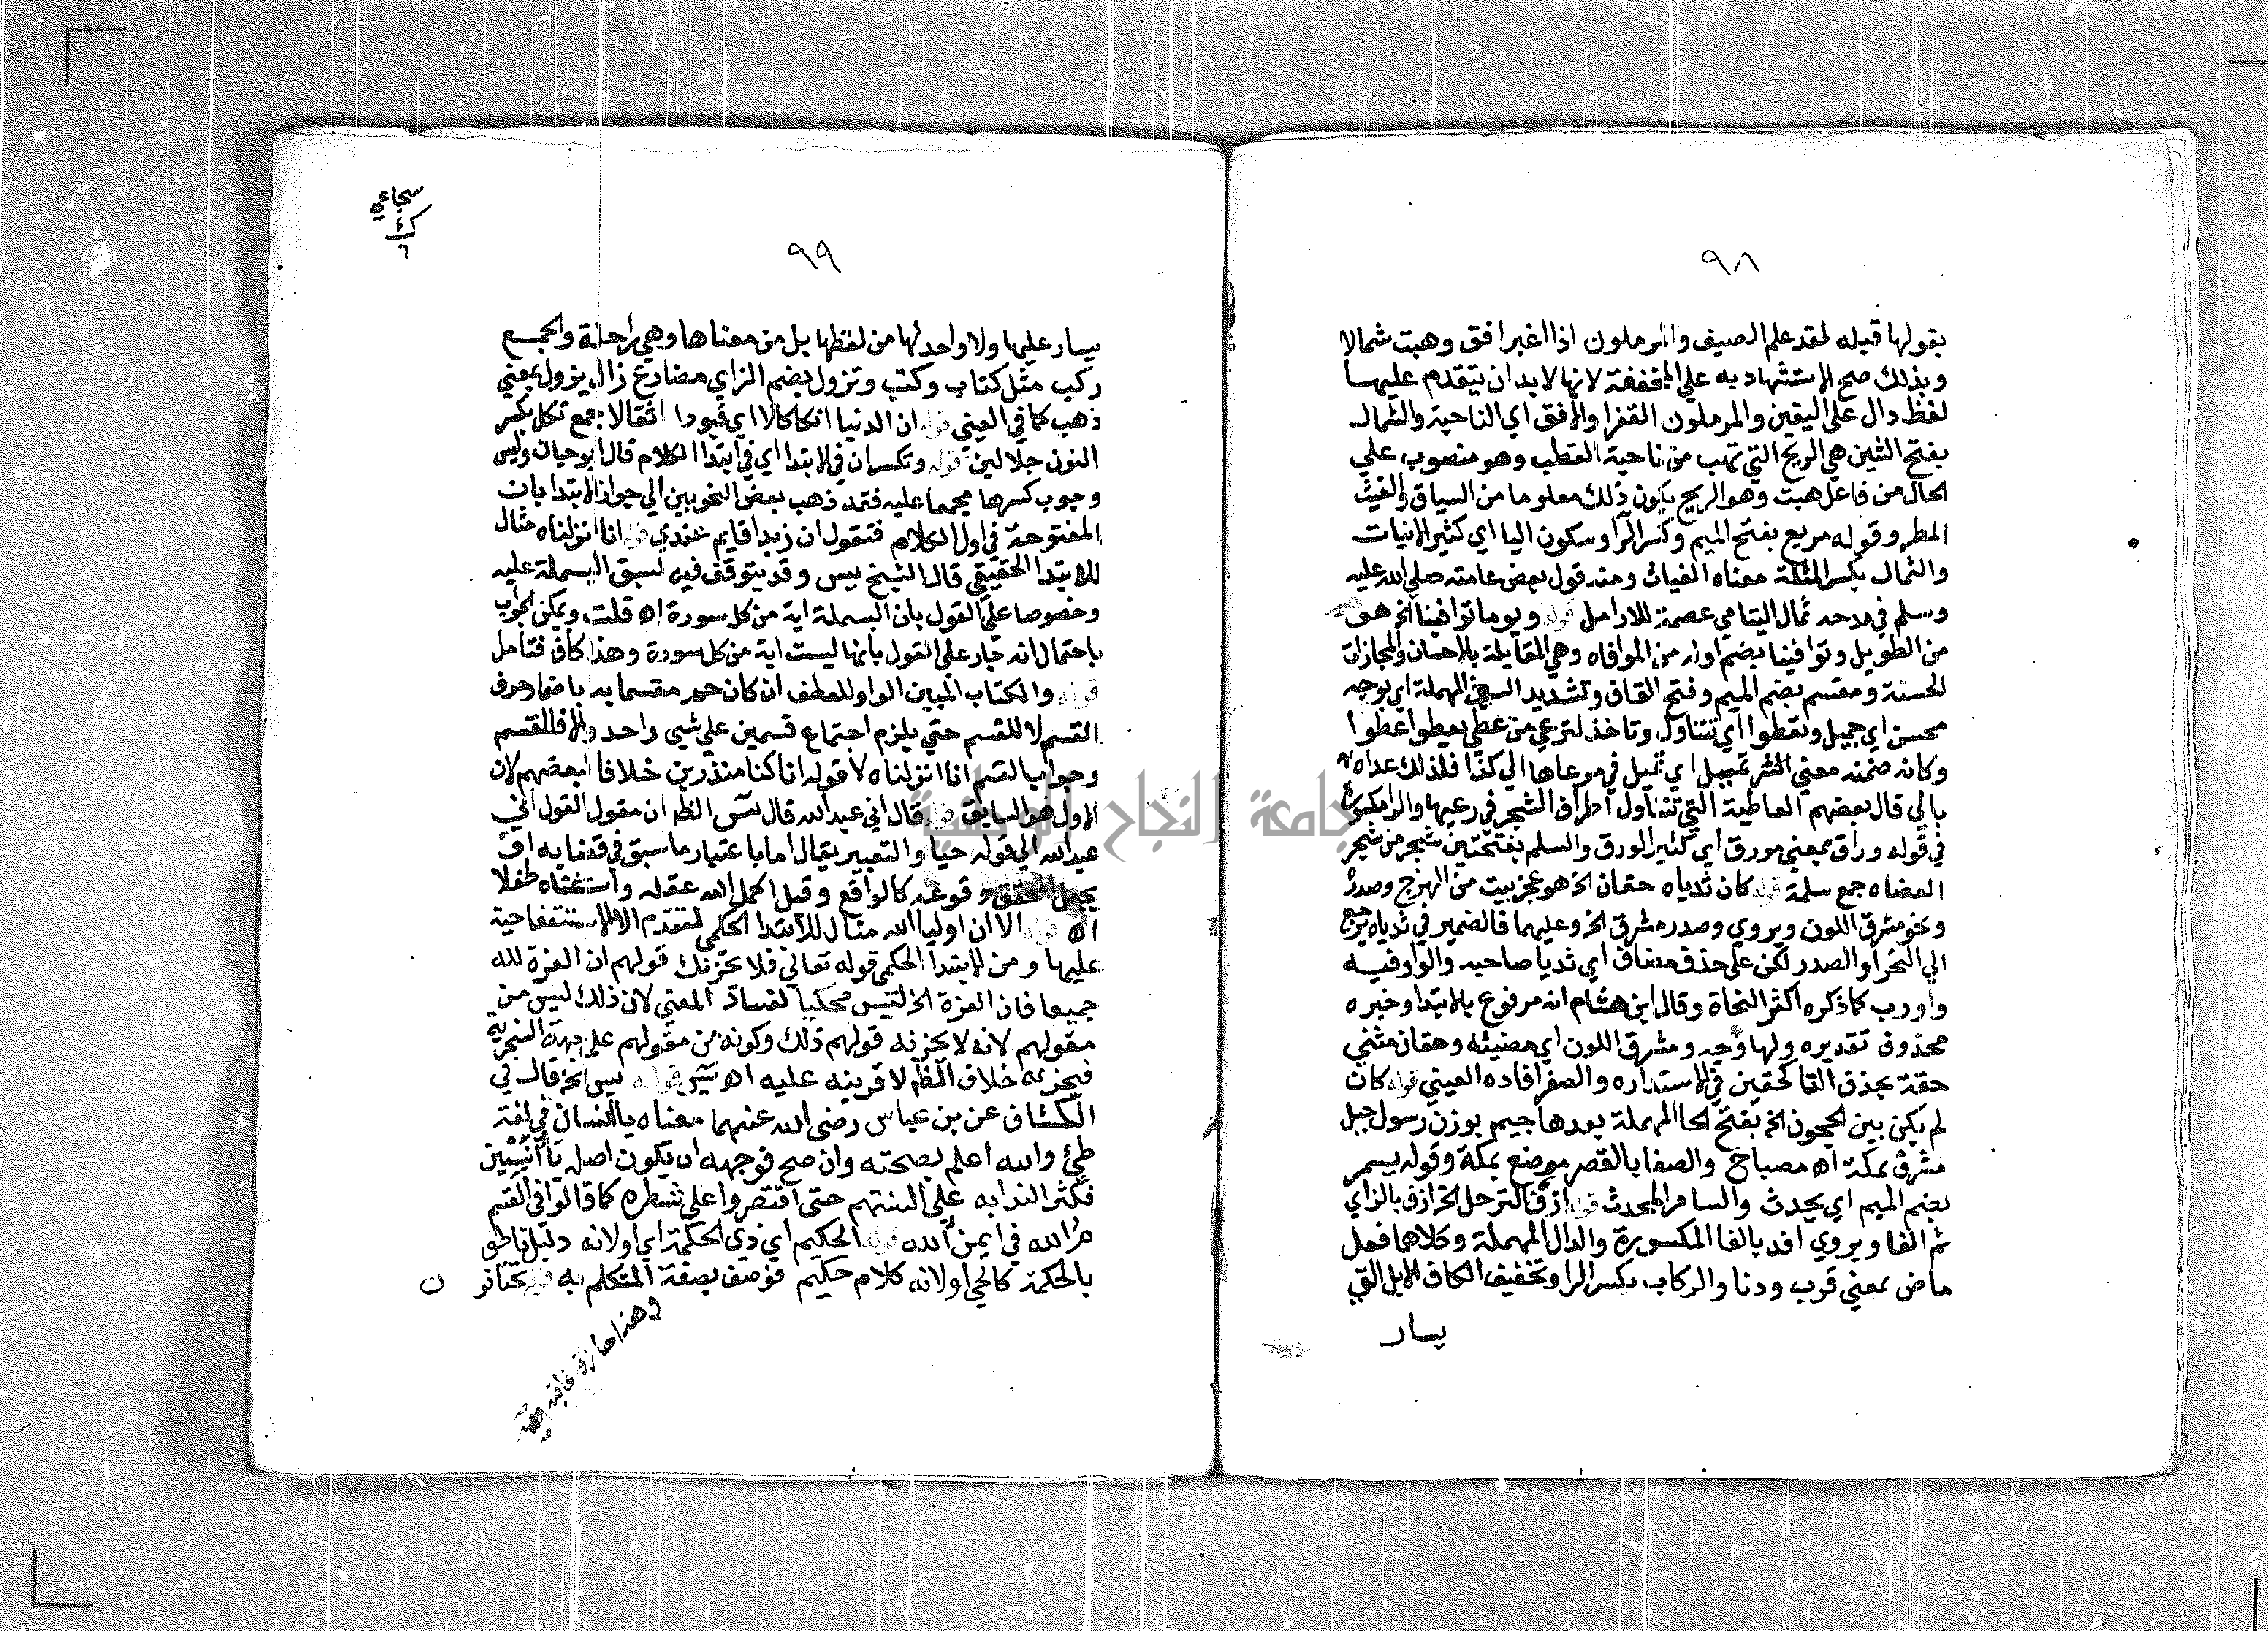 ٩٨
بقولها قبله لقد علم الضيف والمرملون اذا اغبر افق وهبت شمالا
وبذلك صح الاستشهاد به علي المخففة لانها لا بد ان يتقدم عليها
لفظ دال علي اليقين والمرملون الفقرا والافق اي الناحية والشمال
بفتح الشين هي الريح التي تهب من ناحية القطب وهو منصوب علي
الحال من فاعل هبت وهو الريح يكون ذلك معلوما من السياق والغيث
المطر وقوله مريع بفتح الميم وكسر الرا وسكون اليا اي كثير الانبات
والثمال بكسر المثلثة معناه الغياث ومنه قول بعض عامته صلي الله عليه
وسلم في مدحه ثمال اليتامي عصمة للارامل قوله ويوما توافينا الخ هو
من الطويل وتوافينا بضم اوله من الموافاه وهي المقابلة بالاحسان والمجازات
الحسنة ومقسم بضم الميم وفتح القاف وتشديد السين المهملة اي بوجه
محسن اي جميل وتعطوا اي تتناول وتاخذ لترعي من عطي يعطوا عطوا
وكانه ضمنه معني الشر تمبيل اي تميل في مرعاها الي كذا فلذلك عداه
بالي قال بعضهم العاطية التي تتناول اطراف الشجر في رعيها والرا مكسورة
في قوله وراق بمعني مورق اي كثير الورق والسلم بفتحتين شجر من شجر
العضاه جمع سلمة قوله كان ثدياه حقان الخ هو عجز بيت من الهزج وصدره
ونحو مشرق اللون ويروي وصدر مشرق الخ وعليهما فالضمير في ثدياه يرجع
الي النحر او الصدر لكن علي حذف مضاف اي ثديا صاحبه والواو فيه
واو رب كما ذكره اكثر النحاة وقال ابن هشام انه مرفوع بالابتدا وخبره
محذوف تقديره ولها وجه ومشرق اللون اي مضيئه وحقان مثني
حقة بحذف التا كحقين في الاستداره والصغر افاده العيني قوله كان
لم يكن بين الحجون الخ بفتح الحا المهملة بعدها جيم بوزن رسول جبل
مشرف بمكة اه مصباح والصفا بالقصر موضع بمكة وقوله يسمر
بضم الميم اي يحدث والسامر المحدث قوله ازف الترحل الخ ازف بالزاي
ثم الفا ويروي افد بالفا المكسورة والدال المهملة وكلاهما فعل
ماض بمعني قرب ودنا والركاب بكسر الرا وتخفيف الكاف الابل التي
يسار
سجاعي
ك٤
٦
٩٩
يسار عليها ولا واحد لها من لفظها بل من معناها وهي راحلة والجمع
ركب مثل كتاب وكتب وتزول بضم الزاي مضارع زال يزول بمعني
ذهب كما في العيني قوله ان الدنيا انكالا اي قيودا اثقالا جمع نكل بكسر
النون جلالين قوله وتكسر ان في الابتدا اي في ابتدا الكلام قال ابو حيان وليس
وجوب كسرها مجمعا عليه فقد ذهب بعض النحويين الي جواز الابتدا بان
المفتوحة في اول الكلام فتقول ان زيدا قايم عندي قوله انا انزلناه مثال
للابتدا الحقيقي قال الشيخ يس وقد يتوقف فيه لسبق البسملة عليه
وخصوصا علي القول بان البسملة اية من كل سورة اه قلت ويمكن الجواب
باحتمال انه جار علي القول بانها ليست اية من كل سورة وهذا كاف فتامل
قوله والكتاب المبين الواو للعطف ان كان حم مقسما به باضمار حرف
القسم لا للقسم حتي يلزم اجتماع قسمين علي شيي واحد والا فللقسم
وجواب القسم انا انزلناه لا قوله انا كنا منذرين خلافا لبعضهم لان
الاول هو السابق قوله قال اني عبد الله قال يس الظ ان مقول القول اني
عبد الله الي قوله حيا والتعبير يقال اما باعتبار ما سبق في قضايه او
بجعل المحقق وقوعه كالواقع وقيل اكمل الله عقله واستنبأه طفلا
اه قوله الا ان اوليا الله مثال للابتدا الحكمي لتقدم الا الاستفتاحية
عليها ومن الابتدا الحكمي قوله تعالي فلا يحزنك قولهم ان العزة لله
جميعا فان العزة الخ لتيس محكيا لفساد المعني لان ذلك ليس من
مقولهم لانه لا يحزنه قولهم ذلك وكونه من مقولهم علي جهة السخرية
فيحزنه خلاف الظ لا قرينه عليه اه يس قوله يس الخ قال في
الكشاف عن بن عباس رضي الله عنهما معناه يا انسان في لغة
طئ والله اعلم بصحته وان صح فوجهه ان يكون اصله يا انيسين
فكثر الندا به علي السنتهم حتي اقتصروا علي شطره كما قالوا في القسم
مُ الله في ايمن الله قوله الحكيم اي ذي الحكمة اي او لانه دليل ناطق
بالحكمة كالحي او لانه كلام حكيم فوصف بصفة المتكلم به
جامعة النجاح الوطنية